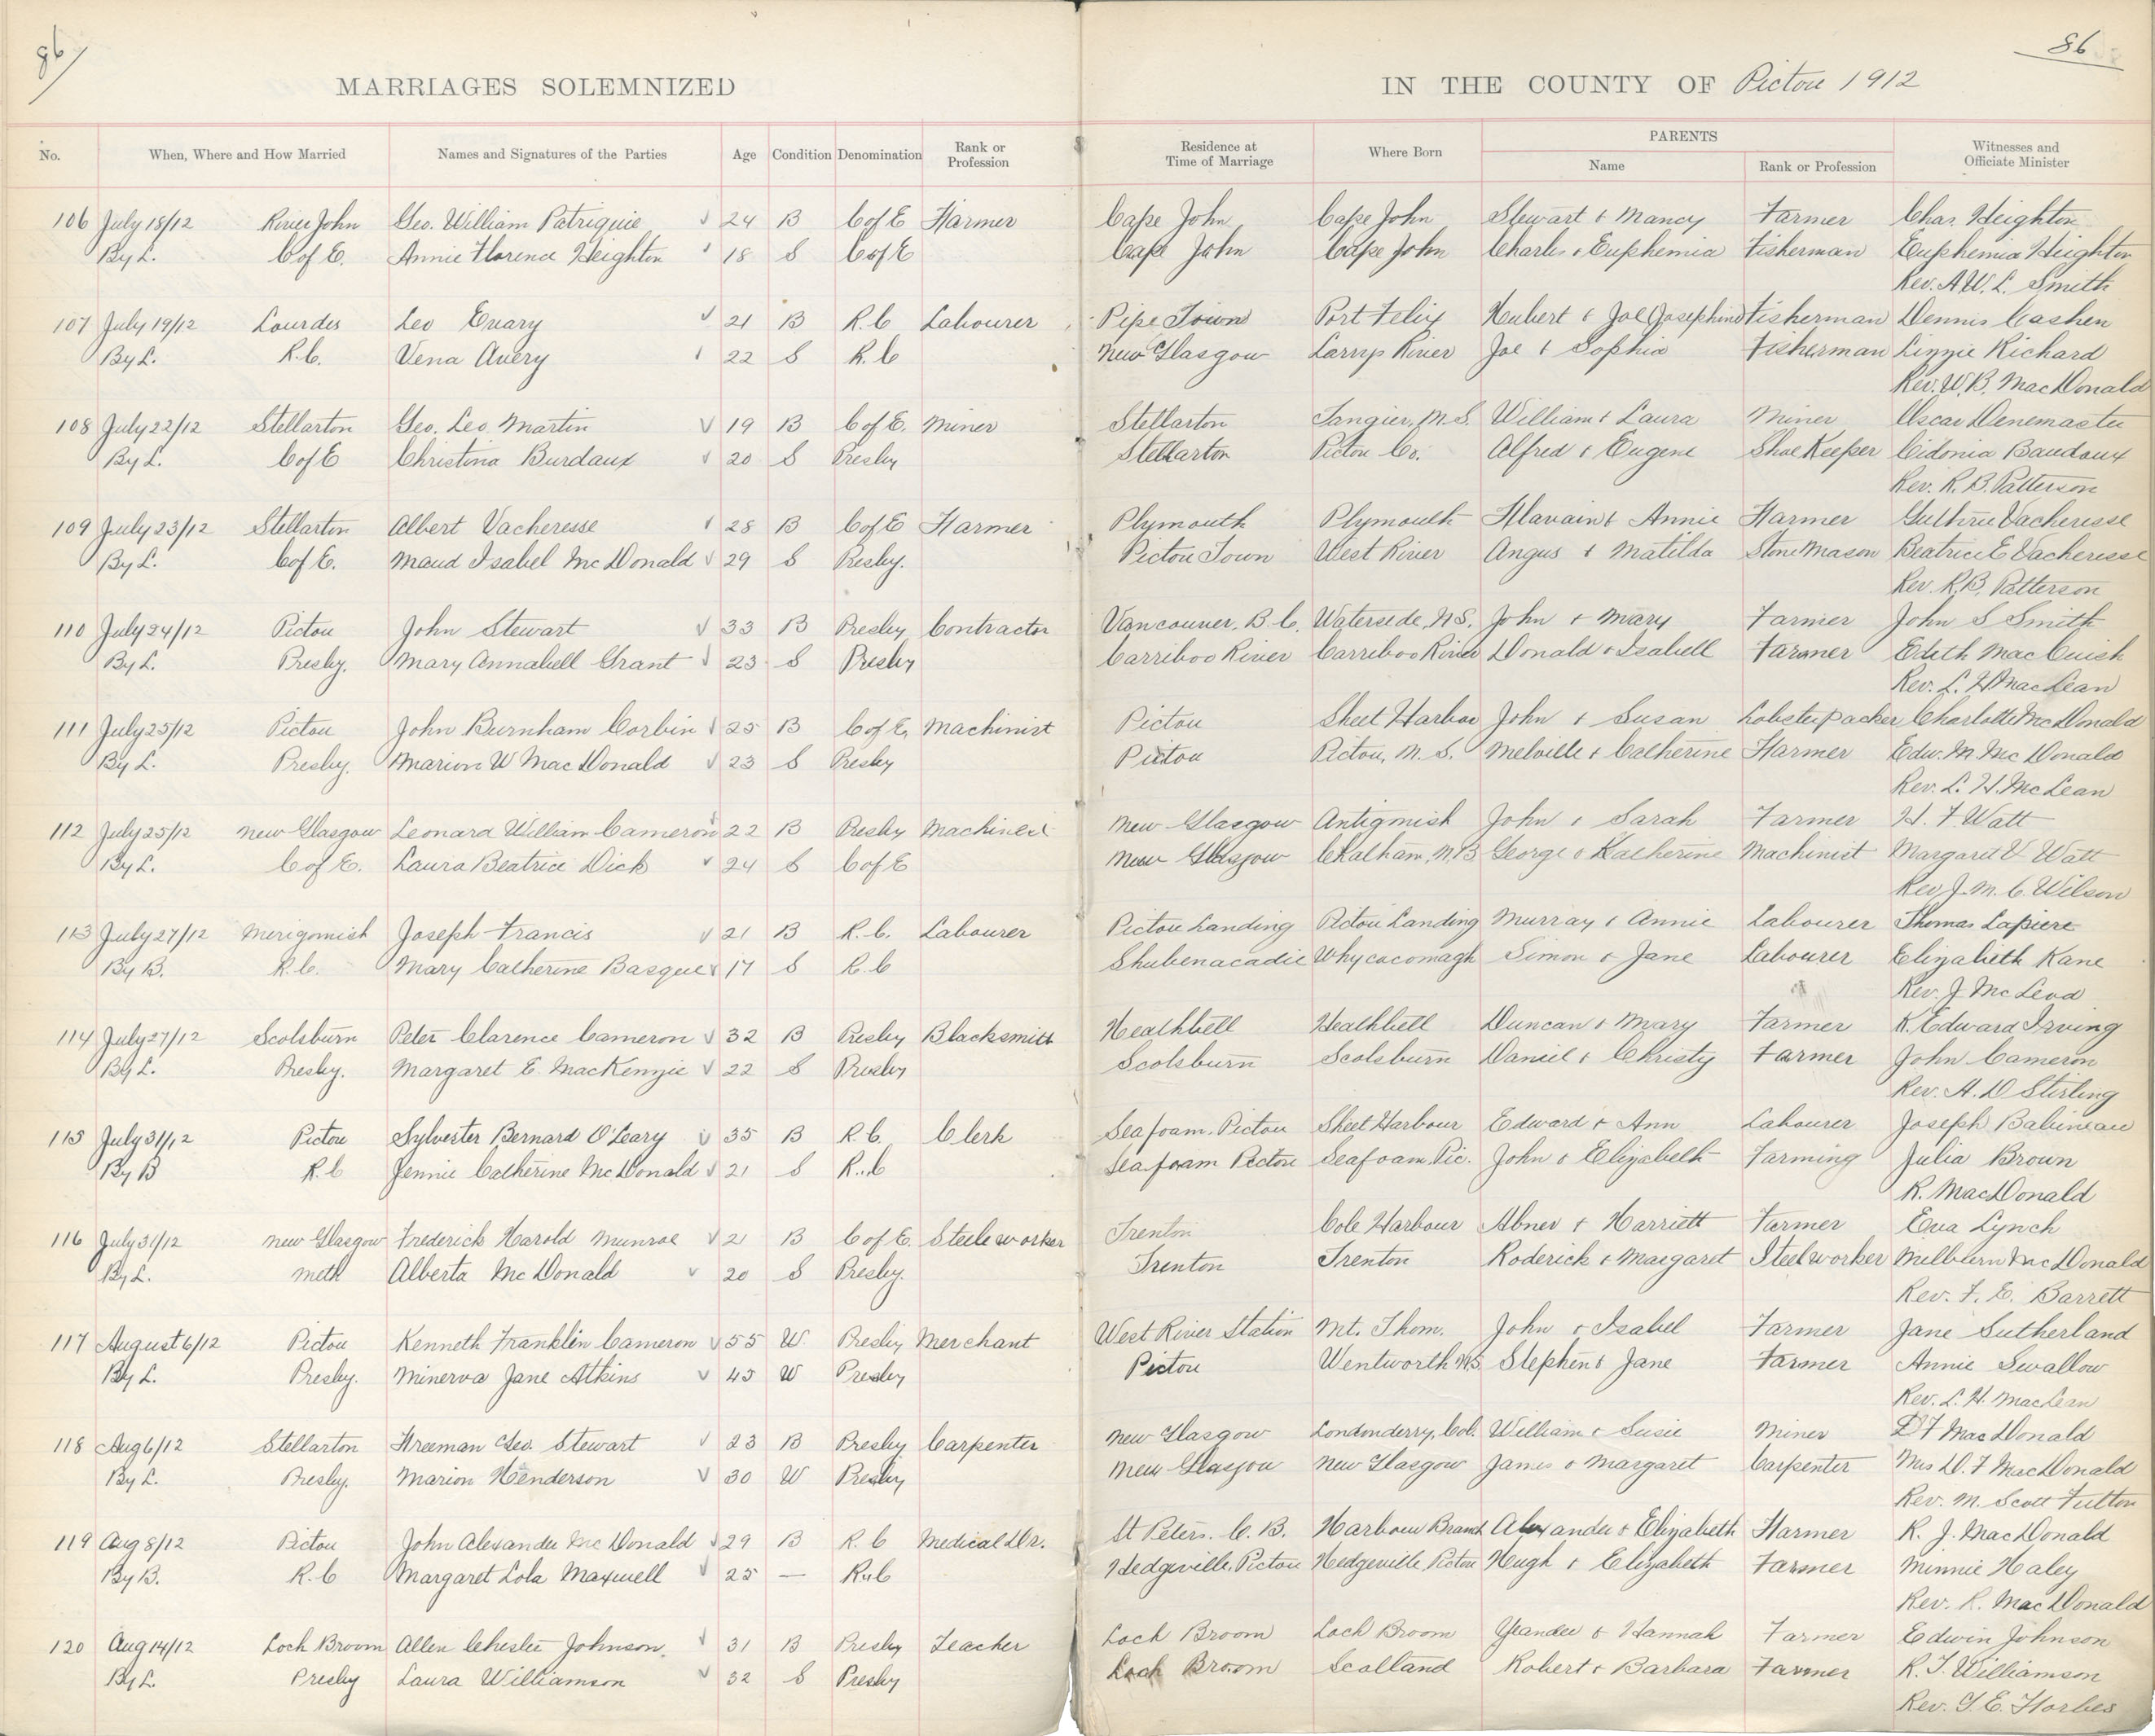 86
86
MARRIAGES SOLEMNIZED IN THE COUNTY OF Pictou 1912
No. When, Where and How Married Names and Signatures of the Parties Age Condition Denomination Rank or Profession Residence at Time of Marriage Where Born PARENTS Name Rank or Profession Witnesses and Officiate Minister
106 July 18/12 River John Geo. William Patriquie 24 B C of E Farmer Cape John Cape John Stewart & Nancy Farmer Chas. Heighton
By L. C of E. Annie Florence Heighton 18 S C of E Cape John Cape John Charles & Euphemia Fisherman Euphemia Heighton
Rev. A.W.L. Smith
107 July 19/12 Lourdes Leo Evary 21 B R.C Labourer Pipe Town Port Felix Hubert & Joe (Josephine) Fisherman Dennis Cashen
By L. R.C. Vena Avery 22 S R.C New Glasgow Larrys River Joe & Sophia Fisherman Lizzie Richard
Rev. W.B. MacDonald
108 July 22/12 Stellarton Geo. Leo Martin 19 B C of E. Miner Stellarton Tangier, N.S. William & Laura Miner Oscar
By L. C of E Christina Burdaux 20 S Presby Stellarton Pictou Co. Alfred & Eugene Shoe Keeper Cidonia Baudoux
Rev. R.B. Patterson
109 July 23/12 Stellarton Albert Vacheresse 28 B C of E Farmer Plymouth Plymouth Flavain & Annie Farmer Guthrie Vacheresse
By L. C of E. Maud Isabel McDonald 29 S Presby. Pictou Town West River Angus & Matilda Stone Mason Beatrice E Vacheresse
Rev. R.B. Patterson
110 July 24/12 Pictou John Stewart 33 B Presby Contractor Vancouver, B.C. Waterside, N.S. John & Mary Farmer John S Smith
By L. Presby. Mary Annabell Grant 23 S Presby Carriboo River Carriboo River Donald & Isabell Farmer Edith MacCuish
Rev. L. H MacLean
111 July 25/12 Pictou John Burnham Corbin 25 B C of E, Machinist Pictou Sheet Harbor John & Susan Lobster packer Charlotte McDonald
By L. Presby. Marion W MacDonald 23 S Presby Pictou Pictou, N.S. Melville & Catherine Farmer Edw. M. McDonald
Rev. L. H. McLean
112 July 25/12 New Glasgow Leonard William Cameron 22 B Presby Machinest New Glasgow Antigonish John & Sarah Farmer H. F Watt
By L. C of E. Laura Beatrice Dick 24 S C of E New Glasgow Chatham, N.B George & Katherine Machinist Margaret V Watt
Rev J. M. C. Wilson
113 July 27/12 Merigomish Joseph Francis 21 B R.C. Labourer Pictou Landing Pictou Landing Murray & Annie Labourer Thomas Lapiere
By B. R.C. Mary Catherine Basque 17 S R.C Shubenacadie Whycocomagh Simon & Jane Labourer Elizabeth Kane
Rev. J. McLeod
114 July 27/12 Scotsburn Peter Clarence Cameron 32 B Presby Blacksmith Heathbell Heathbell Duncan & Mary Farmer R. Edward Irving
By L. Presby. Margaret E. MacKenzie 22 S Presby Scotsburn Scotsburn Daniel & Christy Farmer John Cameron
Rev. A. D Stirling
115 July 31/12 Pictou Sylvester Bernard O'Leary 35 B R.C. Clerk Seafoam, Pictou Sheet Harbour Edward & Ann Labourer Joseph Babineau
By B R.C Jennie Catherine McDonald 21 S R.C Seafoam Pictou Seafoam Pic. John & Elizabeth Farming Julia Brown
R. MacDonald
116 July 31/12 New Glasgow Frederick Harold Munroe 21 B C of E. Steele worker Trenton Cole Harbour Abner & Harriett Farmer Eva Lynch
By L. Meth Alberta McDonald 20 S Presby. Trenton Trenton Roderick & Margaret Steel worker Milburn McDonald
Rev. F. E. Barrett
117 August 6/12 Pictou Kenneth Franklin Cameron 55 W. Presby Merchant West River Station Mt. Thom. John & Isabel Farmer Jane Sutherland
By L. Presby. Minerva Jane Atkins 45 W Presby Pictou Wentworth N.S. Stephen & Jane Farmer Annie Swallow
Rev. L. H. MacLean
118 Aug 6/12 Stellarton Freeman Geo. Stewart 23 B Presby Carpenter New Glasgow Londonderry, Col. William & Susie Miner D F MacDonald
By L. Presby. Marion Henderson 30 W Presby New Glasgow New Glasgow James & Margaret Carpenter Mrs D. F MacDonald
Rev. M. Scott Fulton
119 Aug 8/12 Pictou John Alexander McDonald 29 B R.C Medical Dr. St Peters. C.B. Harbour Branch Alexander & Elizabeth Farmer R. J. MacDonald
By B. R.C Margaret Lola Maxwell 25 — R.C Hedgeville, Pictou Hedgeville, Pictou Hugh & Elizabeth Farmer Minnie Haley
Rev. R. MacDonald
120 Aug 14/12 Loch Broom Allen Chester Johnson. 31 B Presby Teacher Loch Broom Loch Broom Yeander & Hannah Farmer Edwin Johnson
By L. Presby Laura Williamson 32 S Presby Loch Broom Scotland Robert & Barbara Farmer R. J. Williamson
Rev. G. E. Forbes